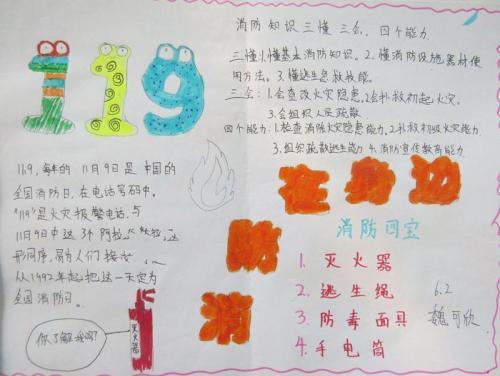 119
119, 每年的11月9日是中国的
全国消防日。在电话号码中,
"119"是火灾报警电话,与
11月9日中这3个阿拉
形同序,易为人们接
从1992年起把这一天定为
全国消防日。
你了解我吗?
灭火器
消防知识三懂三会,四个能力
三懂:1.懂基本消防知识。2.懂消防设施器材使
用方法。3.懂逃生自救技能。
三会:1.会查改火灾隐患。2.会扑救初起火灾。
3.会组织人员疏散
四个能力:1.检查消除火灾隐患能力。2.扑救初级火灾能力
3.组织疏散逃生能力 4.消防宣传教育能力
消防在身边
消防四宝
1. 灭火器
2. 逃生绳
3. 防毒面具
4. 手电筒
6.2
魏可欣